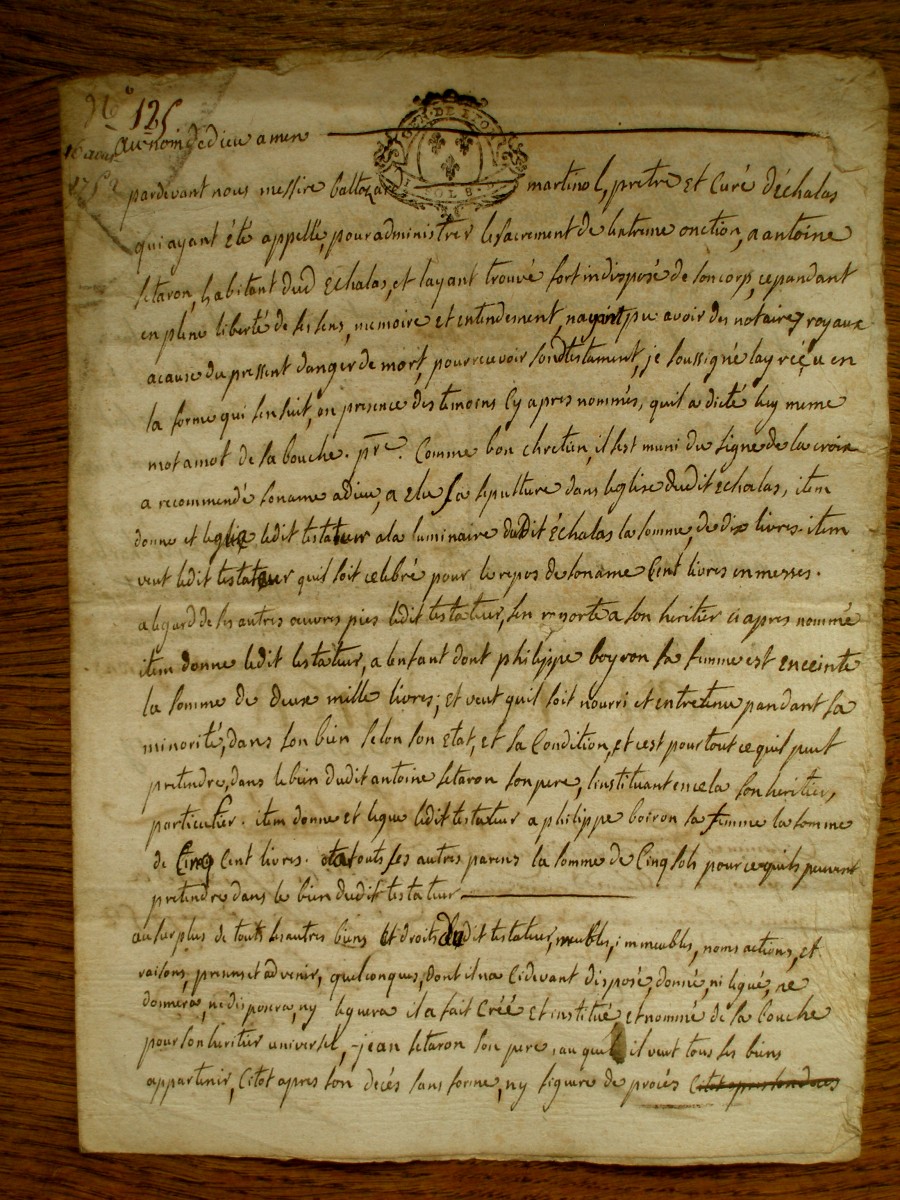 N° 125
Au nom de dieu amen
16 aout
175
pardevant nous messire baltazar martinol, prètre et Curé d'Échalas
qui ayant Été appellé, pour administrer le sacrement de lextreme onction, a antoine
setaron, habitant dud Echalas, et layant trouvé fort indisposé de son corp, cependant
en pleine liberté de ses sens, memoire et entendement, nayant peu avoir des notaires royaux
acause du pressent danger de mort, pour recevoir son testament, je soussigné lay reçeu en
la forme qui sensuit, en presence des temoins Cy apres nommés, quil a dicté luy meme
mot a mot de sa bouche. pre. Comme bon chretien, il sest muni du signe de la croix
a recommendé son ame a dieu, a Elu sa sepulture dans leglise dudit Echalas, item
donne et legue ledit testateur a la luminaire dudit Échalas la somme, de dix livres. item
veut ledit testateur quil soit celebré pour le repos de son ame Cent livres en messes.
a legard de ses autres œuvres pies ledit testateur, sen raporte a son heritier ci apres nommé
item donne ledit testateur, a lenfant dont philippe boyron sa femme est enceinte
la somme de deux mille livres; et veut quil soit nourri et entretenu pandant sa
minorité, dans son bien selon son Etat, et sa Condition, et cest pour tout ce quil peut
pretendre, dans le bien dudit antoine setaron son pere, linstituant en cela son heritier,
particulier. item donne et legue ledit testateur a philippe boiron sa femme la somme
de Cinq Cent livres. et a touts ses autres parens la somme de Cinq sols pour ce quils peuvent
pretendre dans le bien dudit testateur
au surplus de touts les autres biens et droits dudit testateur, meubles, immeubles, noms actions, et
raisons, presens et advenir, quelconques, dont il na Cidevant disposé, donné, ni legué, ne
donnera, ne disposera, ny leguera il a fait Créé et institué et nommé de sa bouche
pour son heritier universel, jean setaron son pere, au quel il veut tous ses biens
appartenir, Citot apres son decés sans forme, ny figure de procés Citot apres son decés